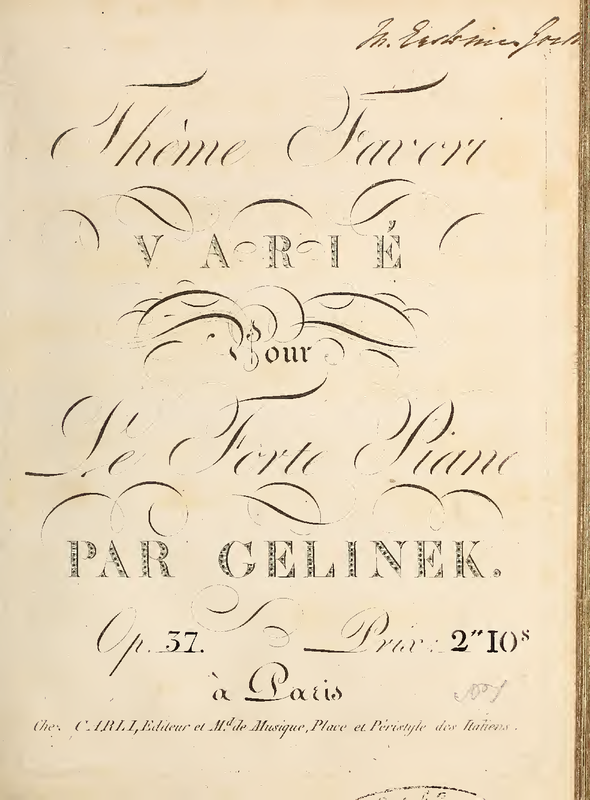 Thême Favori
VARIÉ
Pour
Le Forte Piano
PAR GELINEK.
Op. 37. Prix: 2" 10s
à Paris
Chez CARLI, Editeur et Md. de Musique, Place et Péristyle des Italiens.